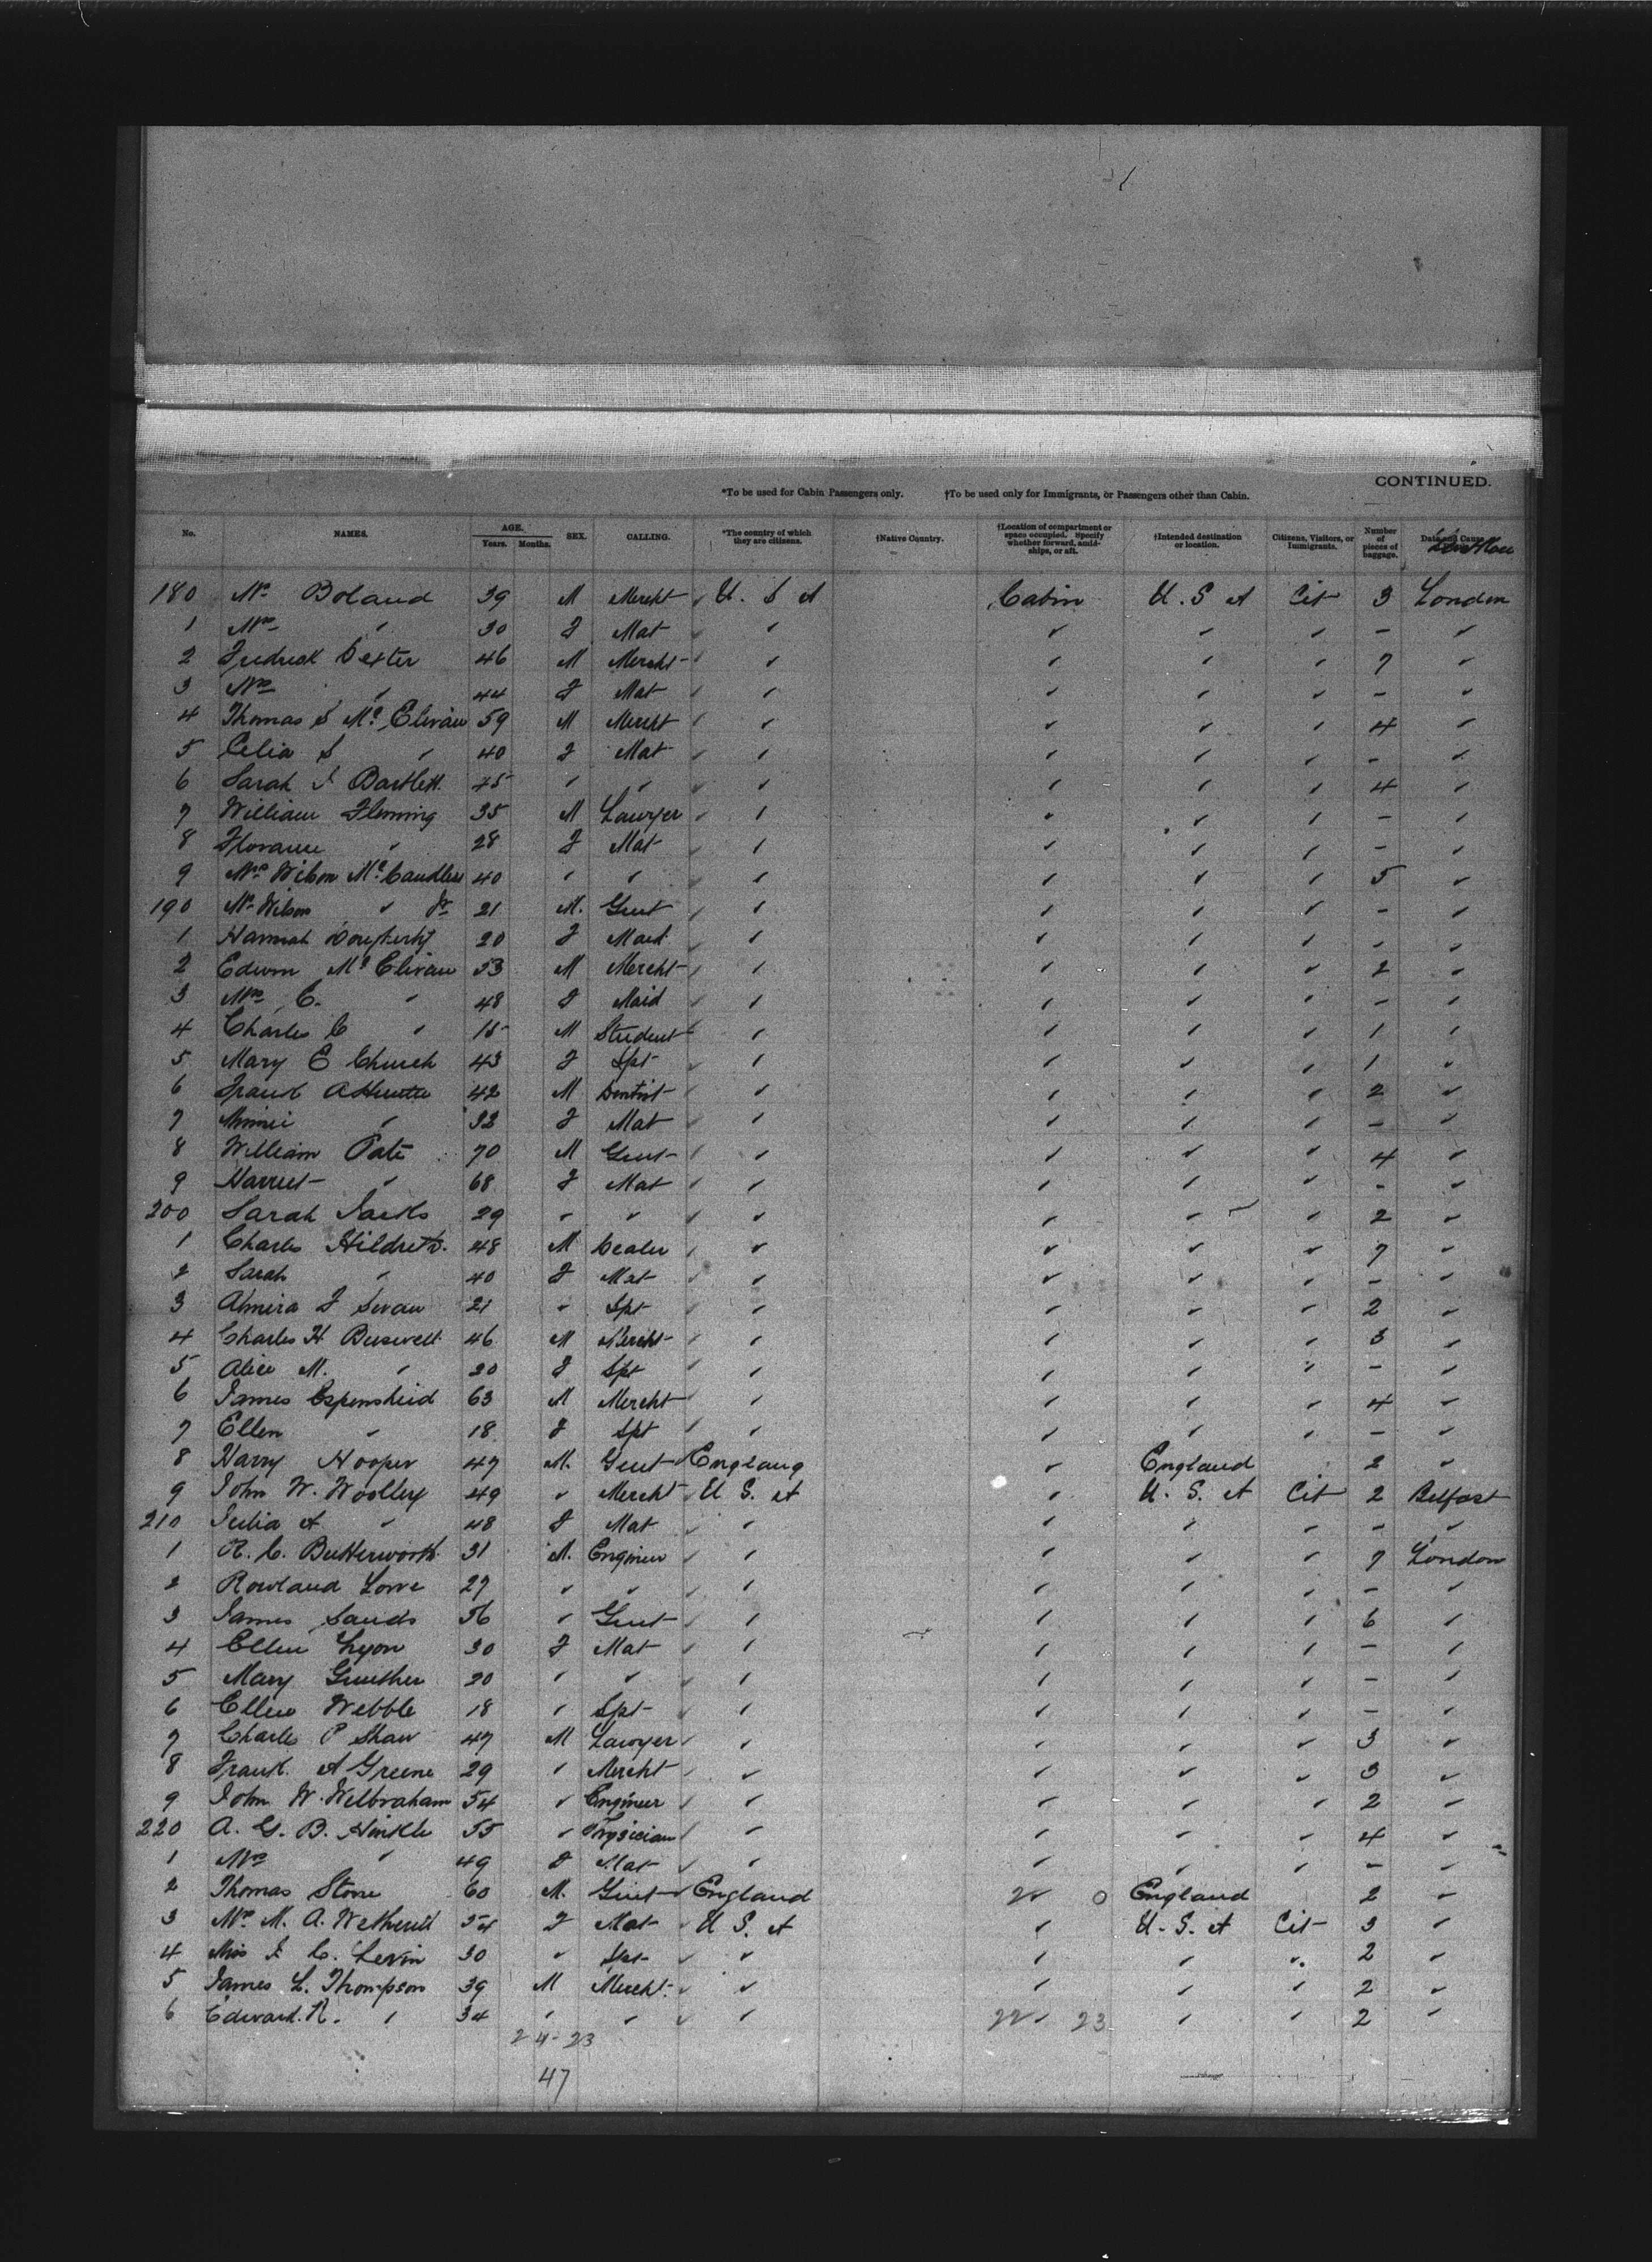 CONTINUED.
*To be used for Cabin Passengers only. †To be used only for Immigrants, or Passengers other than Cabin.
No. NAMES. AGE. Years. Months. SEX. CALLING. *The country of which they are citizens. †Native Country. †Location of compartment or space occupied. Specify whether forward, amidships, or aft. †Intended destination or location. Citizens, Visitors, or Immigrants. Number of pieces of baggage. Date and Cause
180 Mr Boland 39 M Mercht U. S A Cabin U. S A Cit 3 London
1 Mrs " 30 F Mat ✓ ✓ ✓ ✓ - ✓
2 Fredrick Dexter 46 M Mercht ✓ ✓ ✓ ✓ 7 ✓
3 Mrs " 44 F Mat ✓ ✓ ✓ ✓ - ✓
4 Thomas S Mc 59 M Mercht ✓ ✓ ✓ ✓ 4 ✓
5 Celia S " 40 F Mat ✓ ✓ ✓ ✓ - ✓
6 Sarah J Bartlett 45 " " ✓ ✓ ✓ ✓ 4 ✓
7 William Fleming 35 M Lawyer ✓ ✓ ✓ ✓ - ✓
8 " 28 F Mat ✓ ✓ ✓ ✓ - ✓
9 Mrs Wilson McCandless 40 " " ✓ ✓ ✓ ✓ 5 ✓
190 Mr Wilson " Jr 21 M. Gent ✓ ✓ ✓ ✓ - ✓
1 Hannah Dougherty 20 F Maid ✓ ✓ ✓ ✓ - ✓
2 Edwin Mc 53 M Mercht ✓ ✓ ✓ ✓ 2 ✓
3 Mrs C. " 48 F Maid ✓ ✓ ✓ ✓ - ✓
4 Charles C " 15 M Student ✓ ✓ ✓ ✓ 1 ✓
5 Mary E Church 43 F Spt ✓ ✓ ✓ ✓ 1 ✓
6 Frank 42 M Dentist ✓ ✓ ✓ ✓ 2 ✓
7 Minnie " 32 F Mat ✓ ✓ ✓ ✓ - ✓
8 William Pate 70 M Gent ✓ ✓ ✓ ✓ 4 ✓
9 Harriet " 68 F Mat ✓ ✓ ✓ ✓ - ✓
200 Sarah Jacks 29 " " ✓ ✓ ✓ ✓ 2 ✓
1 Charles Hildreth. 48 M Dealer ✓ ✓ ✓ ✓ 7 ✓
2 Sarah " 40 F Mat ✓ ✓ ✓ ✓ - ✓
3 Almira F Swan 21 " Spt ✓ ✓ ✓ ✓ 2 ✓
4 Charles H 46 M Mercht ✓ ✓ ✓ ✓ 3 ✓
5 Alice M. " 20 F Spt ✓ ✓ ✓ ✓ - ✓
6 James Espensheid 63 M Mercht ✓ ✓ ✓ ✓ 4 ✓
7 Ellen " 18 F Spt ✓ ✓ ✓ ✓ - ✓
8 Harry Hooper 47 M. Gent England ✓ England 2 ✓
9 John W. Woolley 49 " Mercht U S. A ✓ U. S. A Cit 2 Belfast
210 Julia A " 48 F Mat ✓ ✓ ✓ ✓ - ✓
1 R. C. Butterworth 31 M. Engineer ✓ ✓ ✓ ✓ 7 London
2 Rowland Lowe 27 " " ✓ ✓ ✓ ✓ - ✓
3 James Sands 56 " Gent ✓ ✓ ✓ ✓ 6 ✓
4 Ellen Lyon 30 F Mat ✓ ✓ ✓ ✓ - ✓
5 Mary Gunther 20 " " ✓ ✓ ✓ ✓ - ✓
6 Ellen Webble 18 " Spt ✓ ✓ ✓ ✓ - ✓
7 Charles P Shaw 47 M Lawyer ✓ ✓ ✓ ✓ 3 ✓
8 Frank. A Greene 29 " Mercht ✓ ✓ ✓ ✓ 3 ✓
9 John W. Welbraham 54 " Engineer ✓ ✓ ✓ ✓ 2 ✓
220 A. G. B. Hinkle 55 " Physician ✓ ✓ ✓ ✓ 4 ✓
1 Mrs " 49 F Mat ✓ ✓ ✓ ✓ - ✓
2 Thomas Stone 60 M. Gent England 0 England 2 ✓
3 Mrs M. A. Wetherill 54 F Mat U S. A ✓ U. S. A Cit 3 ✓
4 Miss J. C. Levin 30 " Spt ✓ ✓ ✓ ✓ 2 ✓
5 James L. Thompson 39 M Mercht. ✓ ✓ ✓ ✓ 2 ✓
6 Edward. R. " 34 " " ✓ 22 23 ✓ ✓ 2 ✓
24-23
47